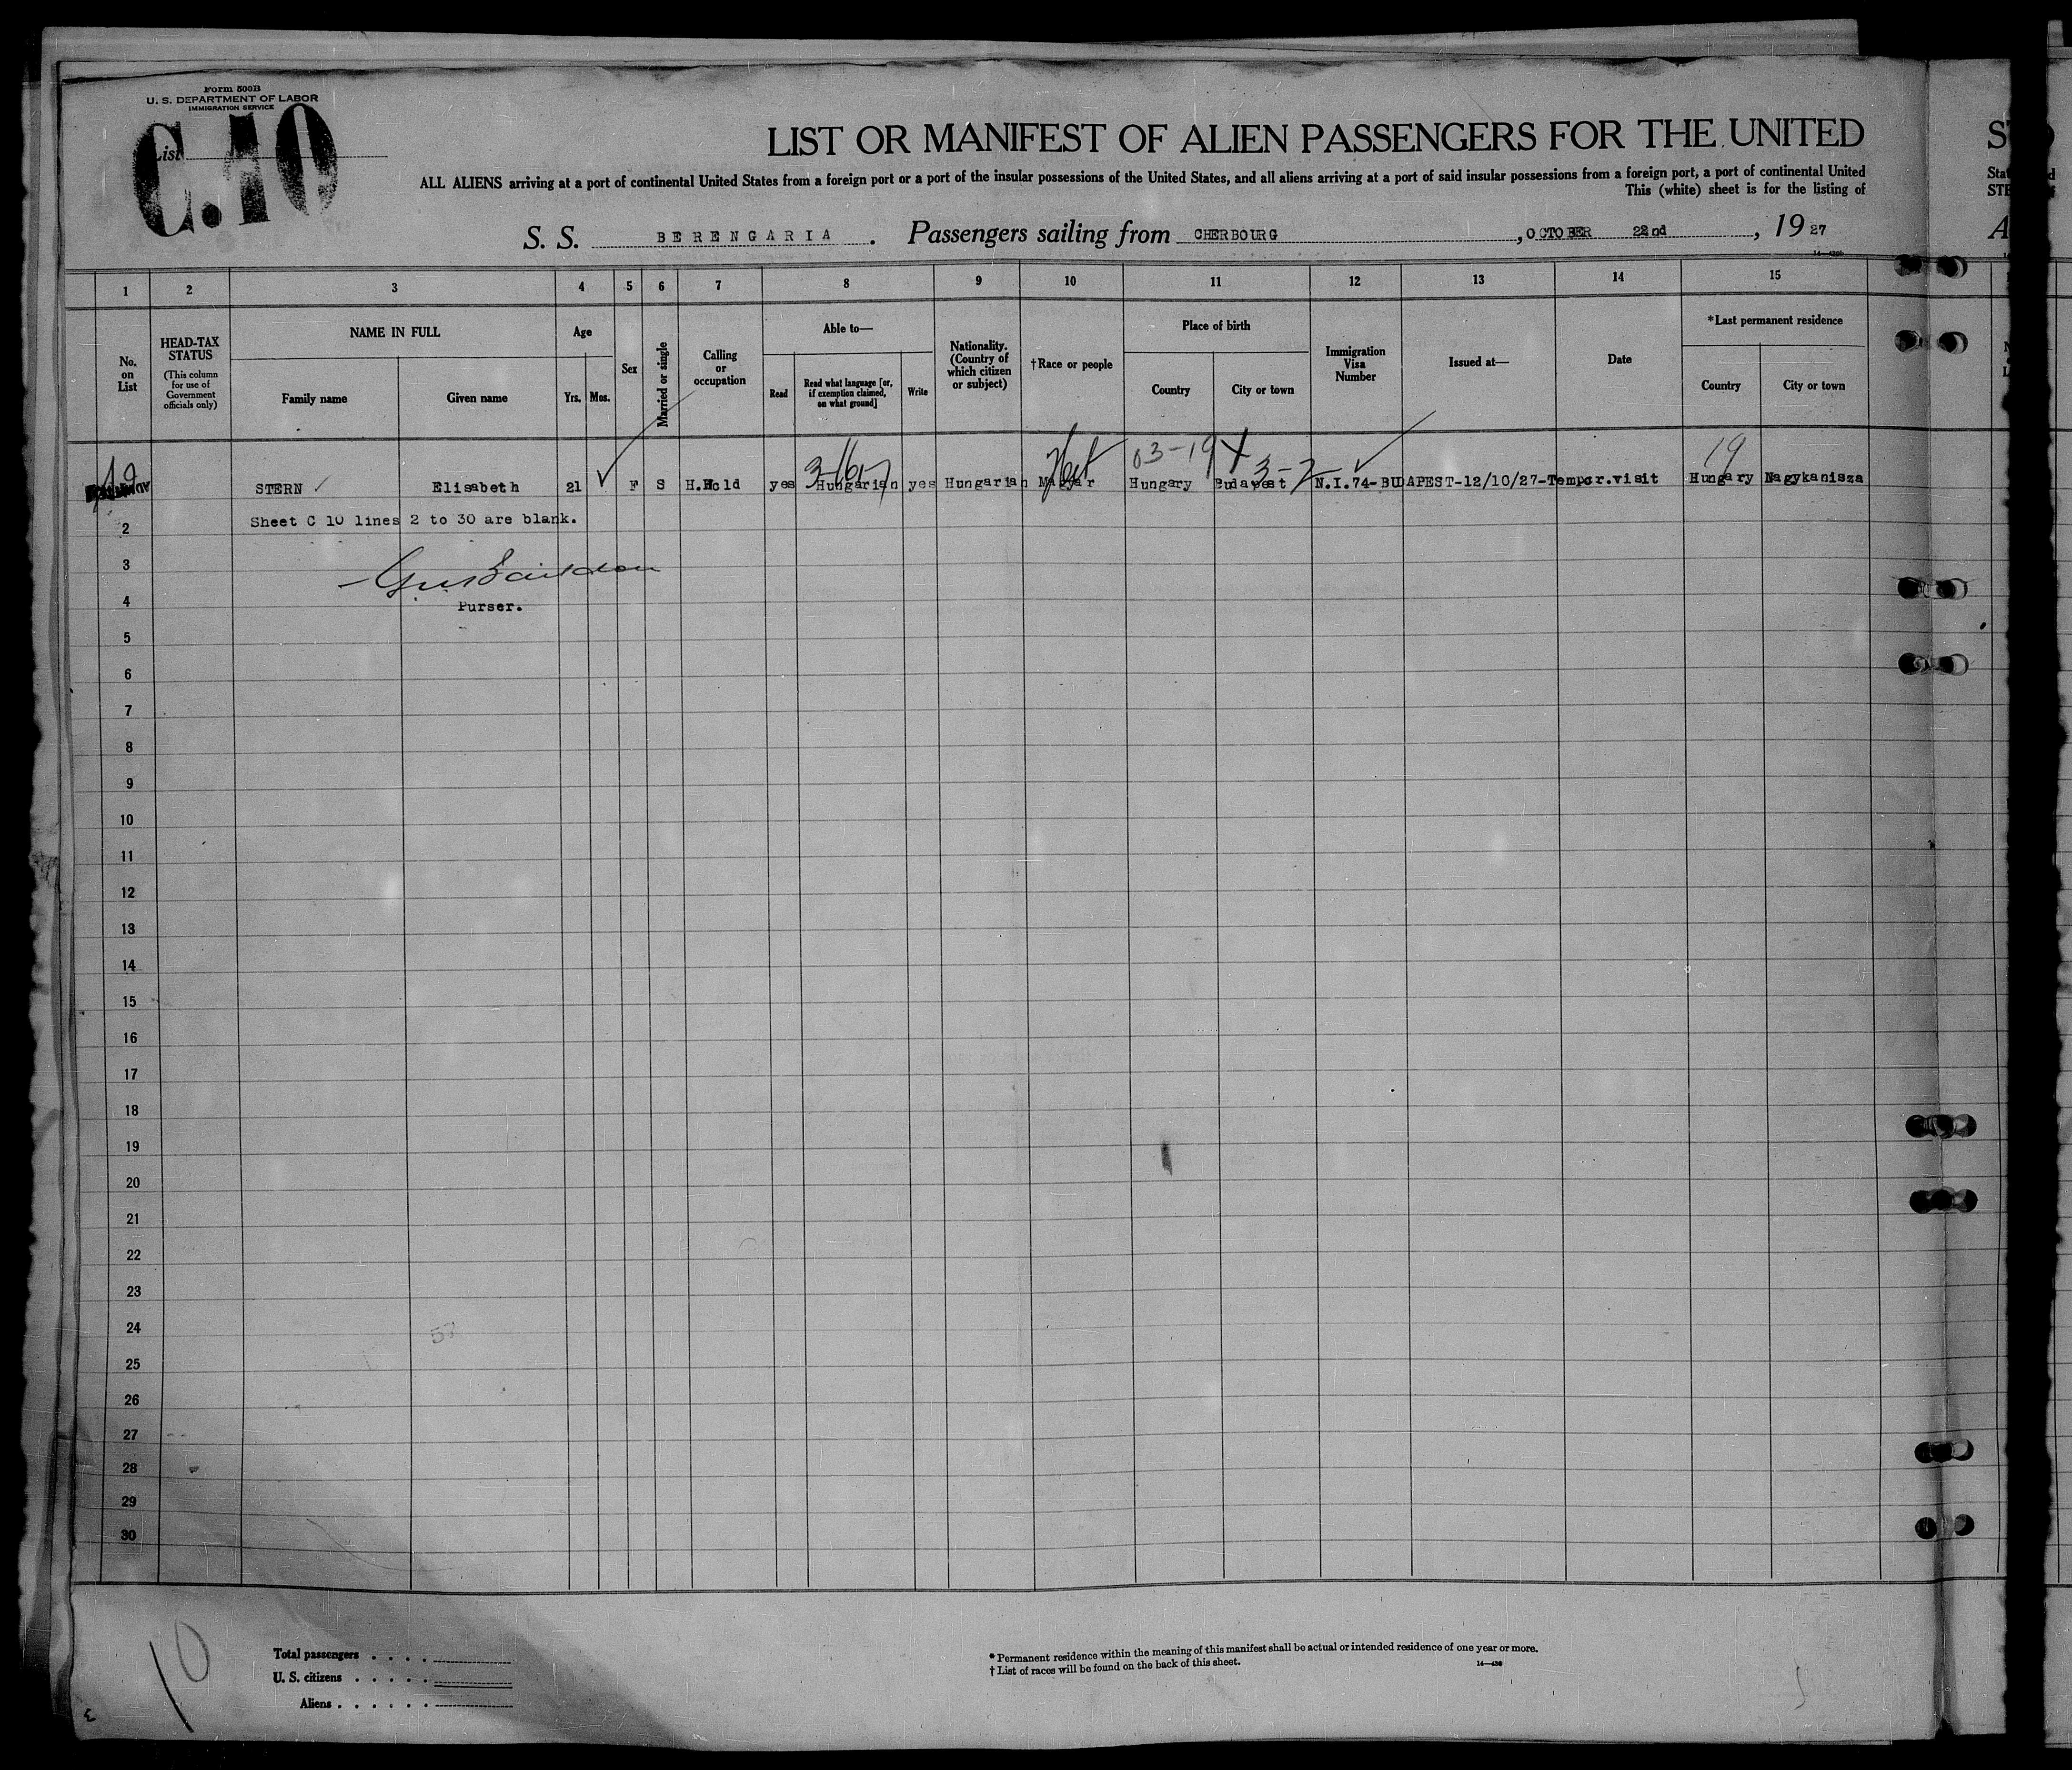 Form 500B
U. S. DEPARTMENT OF LABOR
IMMIGRATION SERVICE
C.10
List
LIST OR MANIFEST OF ALIEN PASSENGERS FOR THE UNITED
ALL ALIENS arriving at a port of continental United States from a foreign port or a port of the insular possessions of the United States, and all aliens arriving at a port of said insular possessions from a foreign port, a port of continental United
This (white) sheet is for the listing of
S. S. BERENGARIA. Passengers sailing from CHERBOURG, OCTOBER 22nd, 1927
1 2 3 4 5 6 7 8 9 10 11 12 13 14 15
No. on List
HEAD-TAX STATUS
(This column for use of Government officials only)
NAME IN FULL
Family name
Given name
Age
Yrs. Mos.
Sex
Married or single
Calling or occupation
Able to—
Read
Read what language [or, if exemption claimed, on what ground]
Write
Nationality. (Country of which citizen or subject)
†Race or people
Place of birth
Country
City or town
Immigration Visa Number
Issued at—
Date
*Last permanent residence
Country
City or town
03-19 19
3-2
STERN Elisabeth 21 F S H.Hold yes Hungarian yes Hungarian Magyar Hungary Budapest N.I.74-BUDAPEST-12/10/27-Tempor.visit Hungary Nagykanisza
Sheet C 10 lines 2 to 30 are blank.
2
3
Purser.
4
5
6
7
8
9
10
11
12
13
14
15
16
17
18
19
20
21
22
23
24
57
25
26
27
28
29
30
10
Total passengers
U. S. citizens
Aliens
* Permanent residence within the meaning of this manifest shall be actual or intended residence of one year or more.
† List of races will be found on the back of this sheet.
14—430